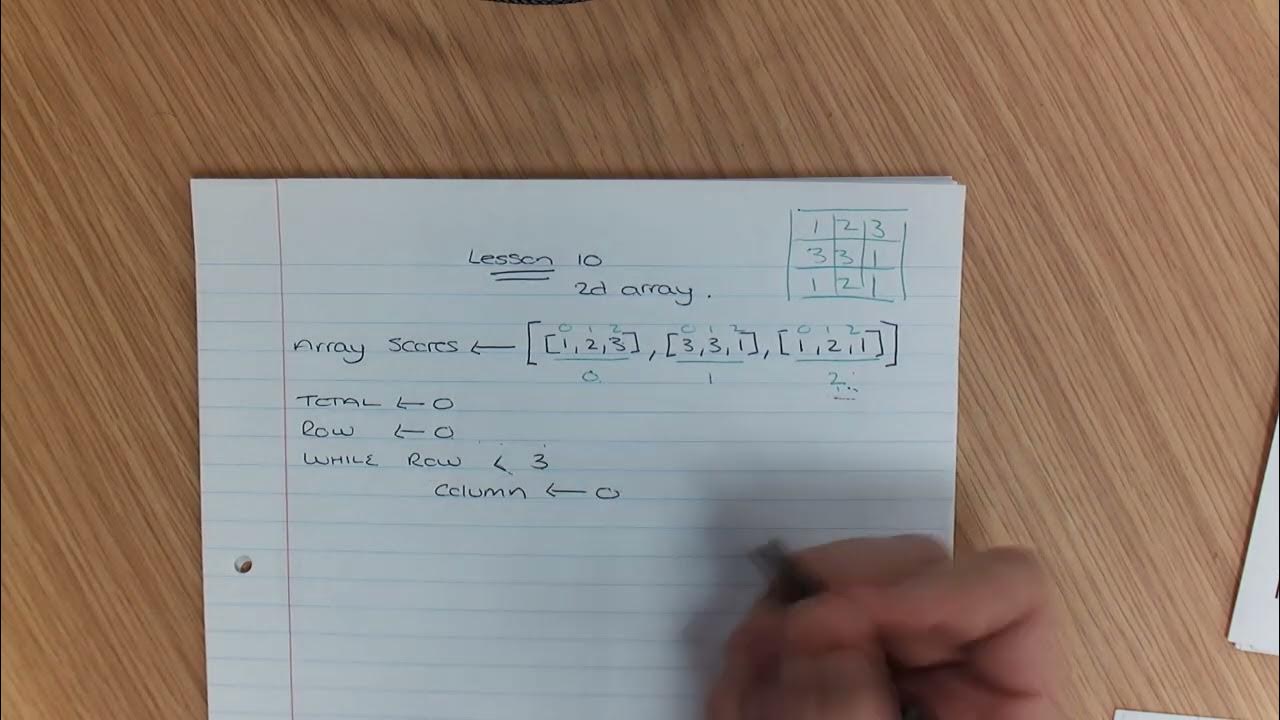 1 2 3
3 3 1
1 2 1
Lesson 10
2d array.
0 1 2 0 1 2 0 1 2
Array Scores ← [[1,2,3],[3,3,1],[1,2,1]]
0 1 2
TOTAL ← 0
ROW ← 0
WHILE ROW < 3
Column ← 0